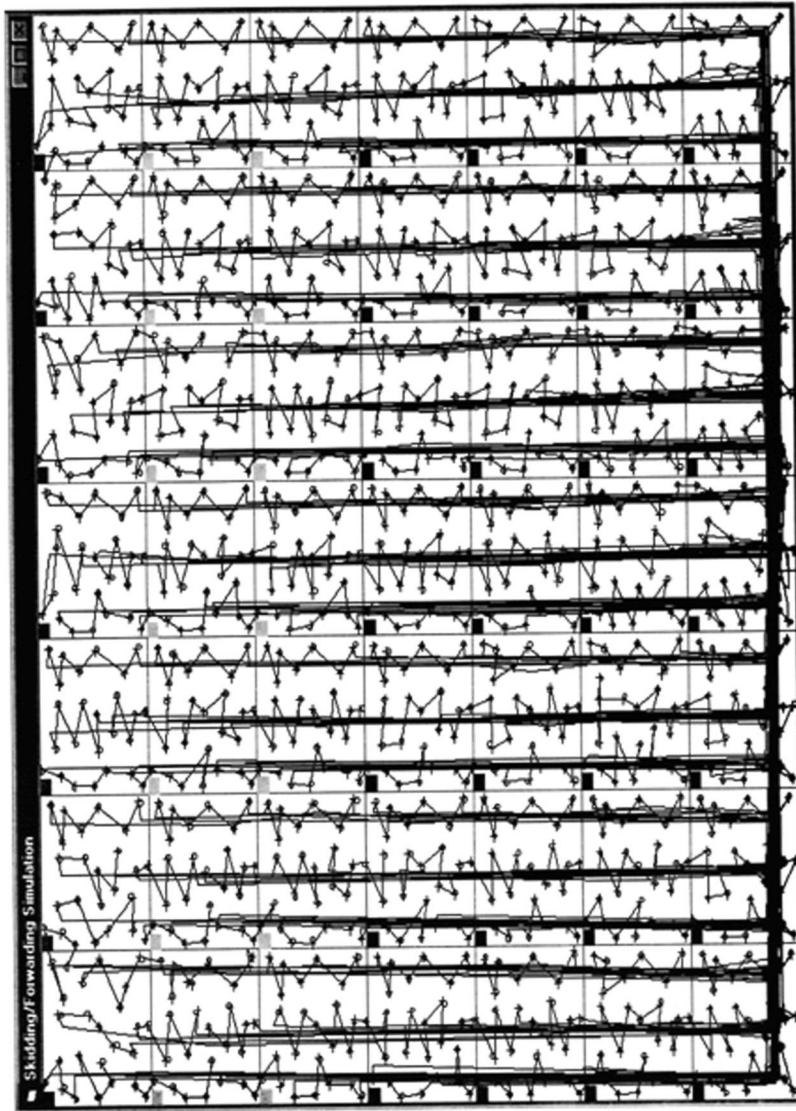 Skidding/Forwarding Simulation